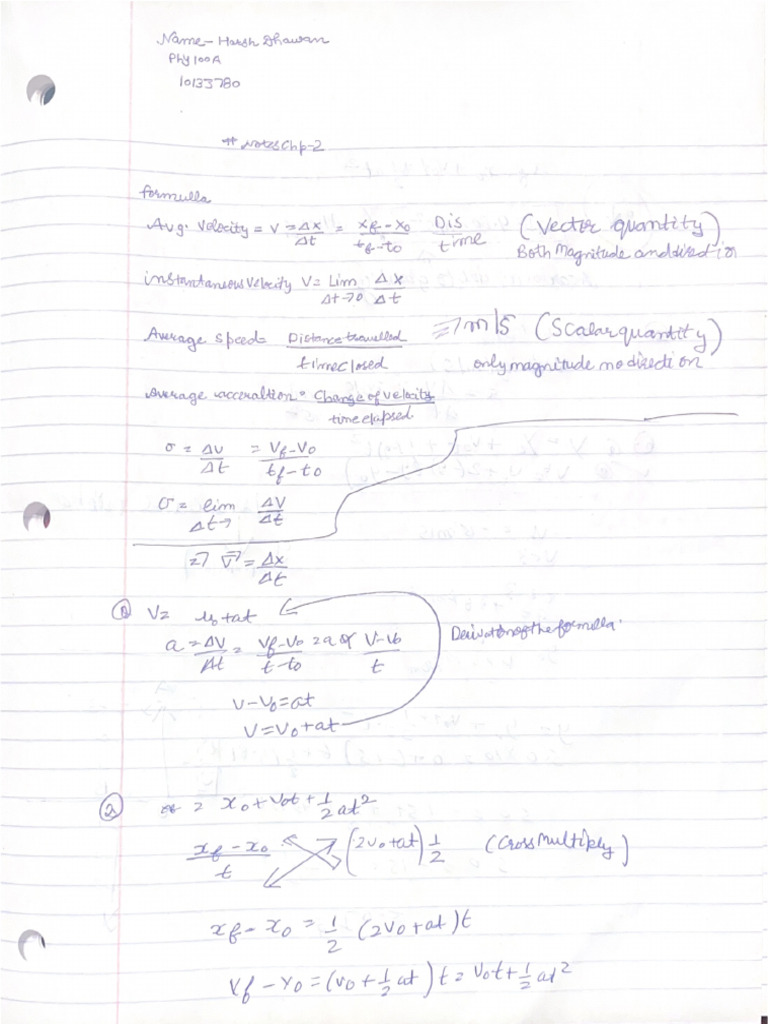 Name - Harsh Dhawan
Phy 100A
10133780
# Notes Chp-2
formulla
Avg. Velocity = V = Δx/Δt = xf-x0/tf-to Dis/time (Vector quantity)
Both Magnitude and direction
instantaneous velocity V= Lim Δt→0 Δx/Δt
Average Speed= Distance travelled/time closed => m/s (Scalar quantity)
only magnitude no direction
Average acceraltion = Change of velocity/time elapsed
σ = Δv/Δt = Vf-V0/tf-to
σ = lim Δt→ ΔV/Δt
=> V→ = Δx/Δt
① V= u0+at
a = ΔV/Δt = Vf-V0/t-to = a or V-V0/t
Derivation of the formulla.
V-V0=at
V=V0+at
② = x0+V0t+1/2 at²
xf-x0/t (2V0+at) 1/2 (Cross Multiply)
xf-x0 = 1/2 (2V0+at)t
Vf-Y0=(V0+1/2 at)t=V0t+1/2 at²